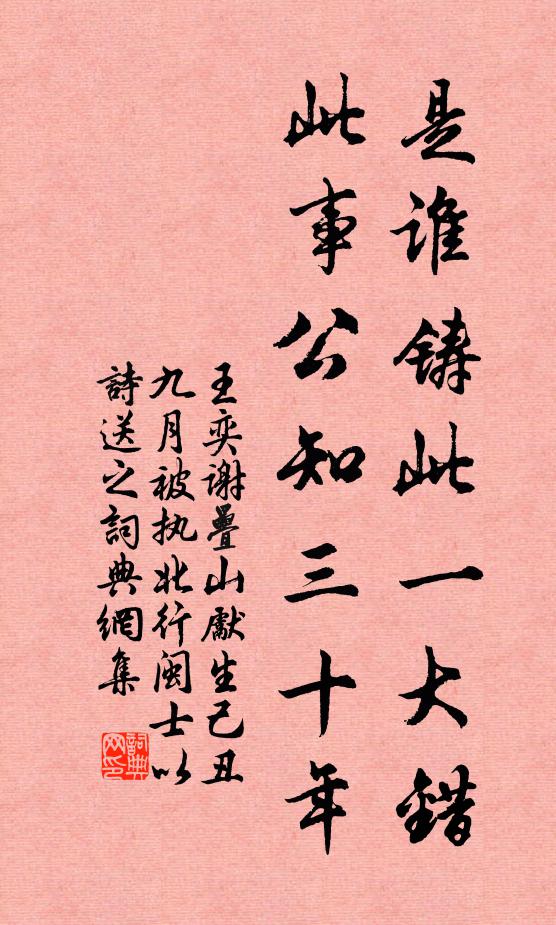 是谁鑄此一大錯
此事公知三十年
王奕谢疊山獻生己丑
九月被执北行闽士以
詩送之詞典網集
詞典网印